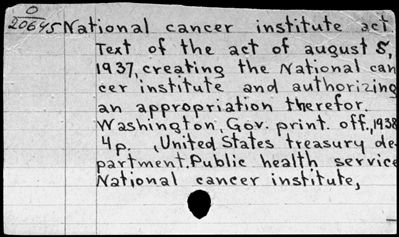 O
20645 National cancer institute act
Text of the act of august 5,
1937, creating the National can
cer institute and authorizing
an appropriation therefor.
Washington, Gov. print. off., 1938
4p. , United States treasury de-
partment. Public health service
National cancer institute,